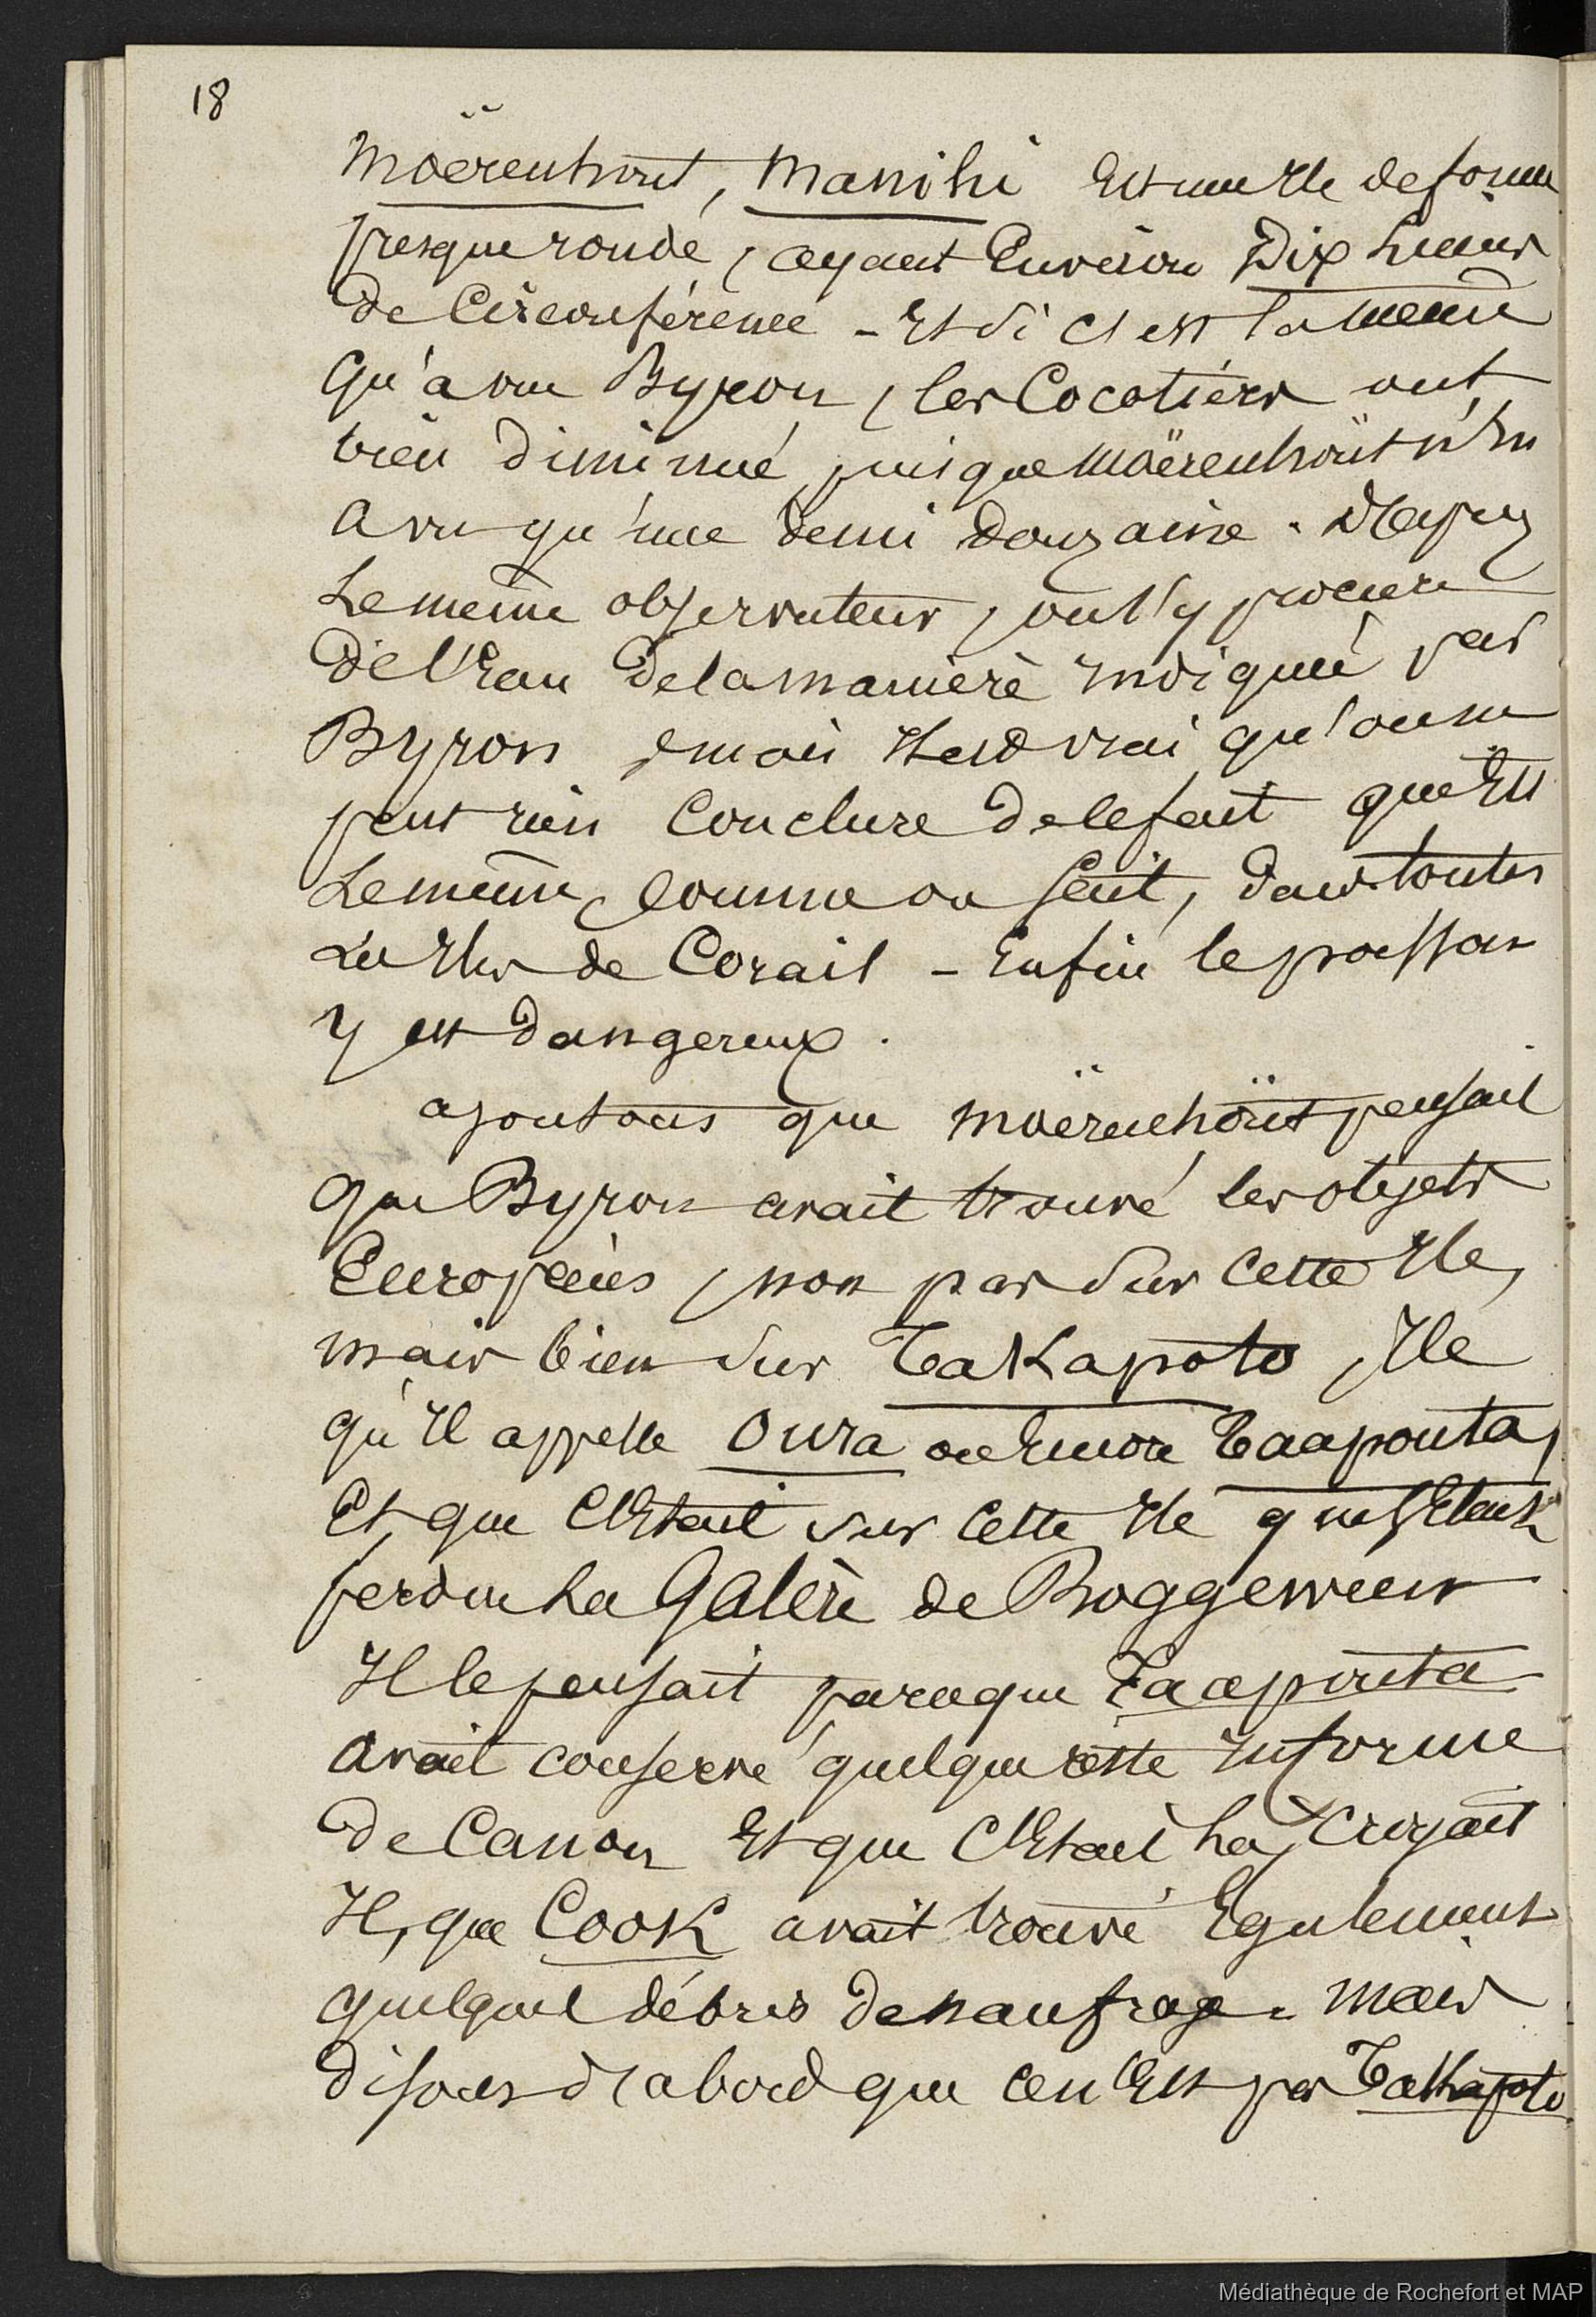 18
Moërenhout, Manihi est une Ile de forme
presque ronde, ayant Environ Dix Lieues
de Circonférence - Et si c'est la même
qu'a vue Byron, les Cocotiers ont
bien diminué, puisque Moërenhoüt n'en
a vu qu'une demi douzaine. D'après
Le même observateur, on s'y procure
de l'Eau de la manière Indiquée par
Byron, mais Il est vrai qu'on ne
peut rien Conclure de ce fait qui Est
Le même, comme on sait, dans toutes
Les Iles de Corail - Enfin le poisson
y est dangereux.
ajoutons que Moërenhoüt pensait
que Byron avait trouvé les objets
Européens, non pas sur cette Ile,
mais bien sur Takapoto, Ile
qu'Il appelle Oura ou Encore Taapouta,
Et que C'Etait sur Cette Ile que s'Etait
perdue La Galère de Roggeween
Il le pensait parceque Taapouta
avait conservé quelque reste Informe
de Canon Et que C'Etait La, Croyait
Il, que Cook avait trouvé Egalement
quelques débris de naufrage. Mais
disons d'abord que ce n'Est pas Takapoto
Médiathèque de Rochefort et MAP